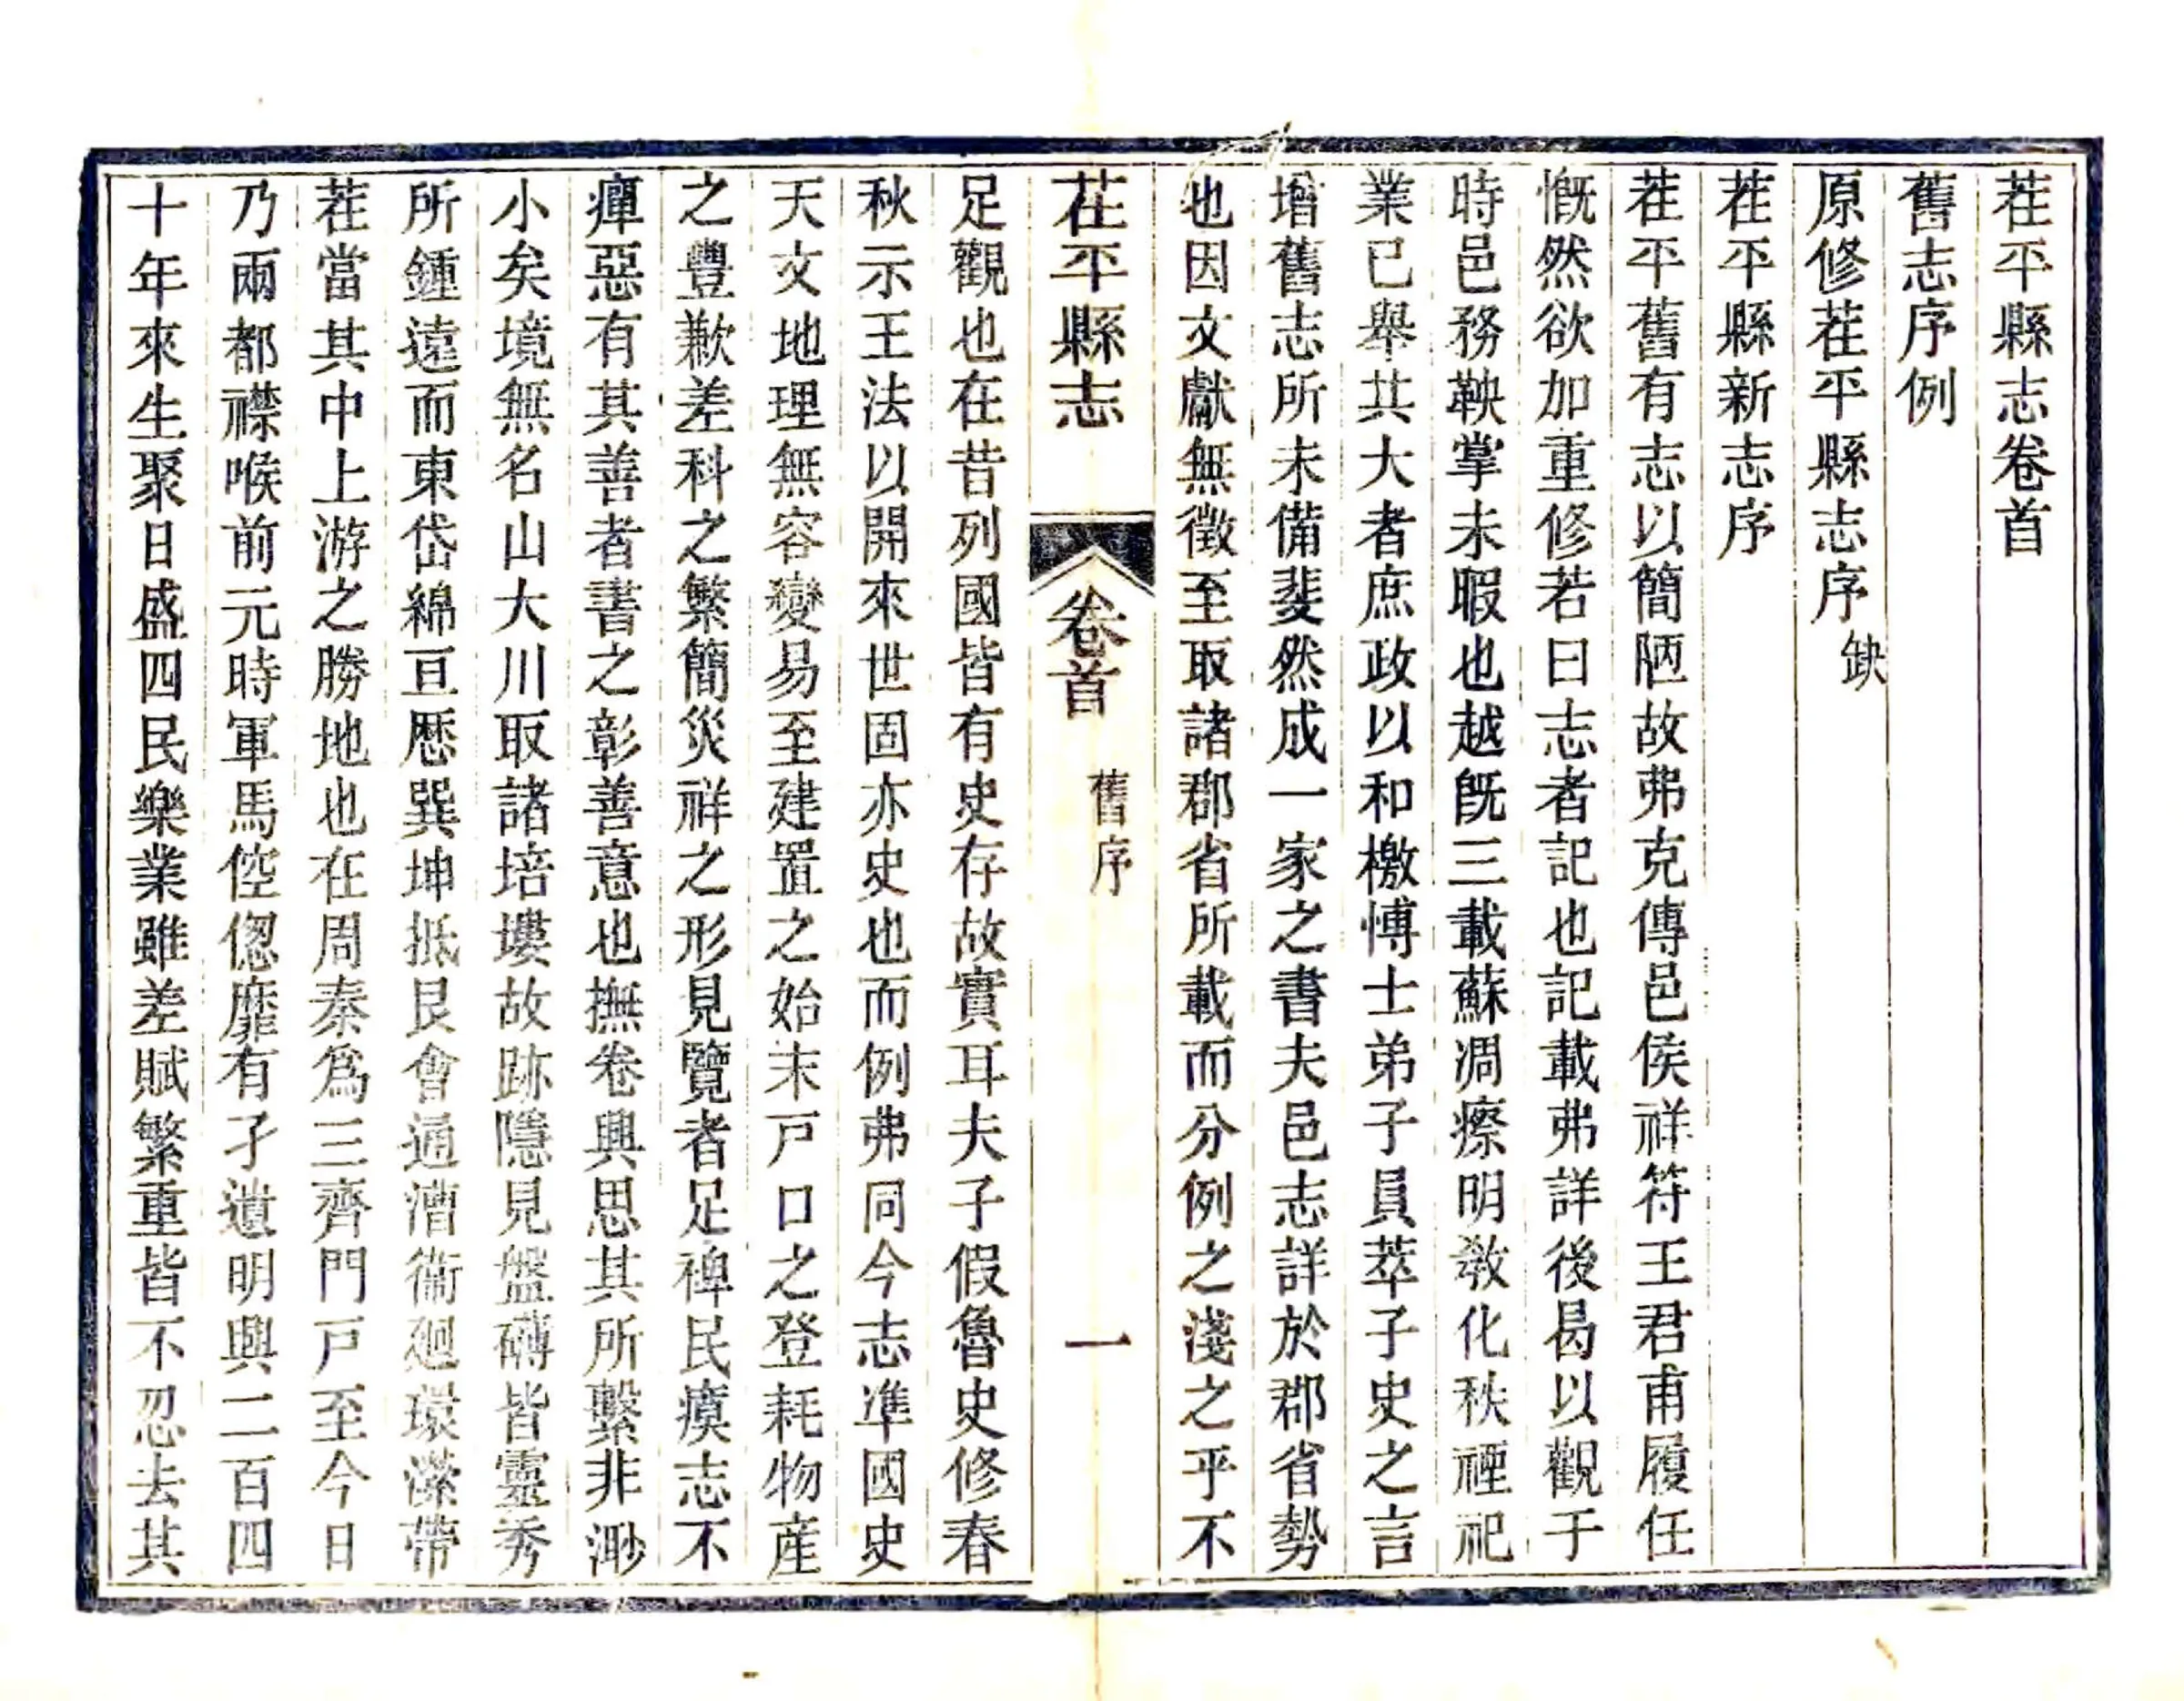 茌平縣志卷首
舊志序例
原修茌平縣志序缺
茌平縣新志序
茌平舊有志以簡陋故弗克傳邑侯祥符王君甫履任
慨然欲加重修若曰志者記也記載弗詳後曷以觀于
時邑務鞅掌未暇也越旣三載蘇凋瘵明敎化秩禋祀
業已舉其大者庶政以和檄博士弟子員萃子史之言
增舊志所未備斐然成一家之書夫邑志詳於郡省勢
也因文獻無徵至取諸郡省所載而分例之淺之乎不
茌平縣志 卷首 舊序 一
足觀也在昔列國皆有史存故實耳夫子假魯史修春
秋示王法以開來世固亦史也而例弗同今志準國史
天文地理無容變易至建置之始末戸口之登耗物産
之豐歉差科之繁簡災祥之形見覽者足裨民瘼志不
癉惡有其善者書之彰善意也撫卷興思其所繫非渺
小矣境無名山大川取諸培塿故跡隱見盤礴皆靈秀
所鍾遠而東岱綿亘歷巽坤抵艮會通漕衞廻環濴帶
茌當其中上游之勝地也在周秦爲三齊門戸至今日
乃兩都襟喉前元時軍馬倥偬靡有孑遺明興二百四
十年來生聚日盛四民樂業雖差賦繁重皆不忍去其